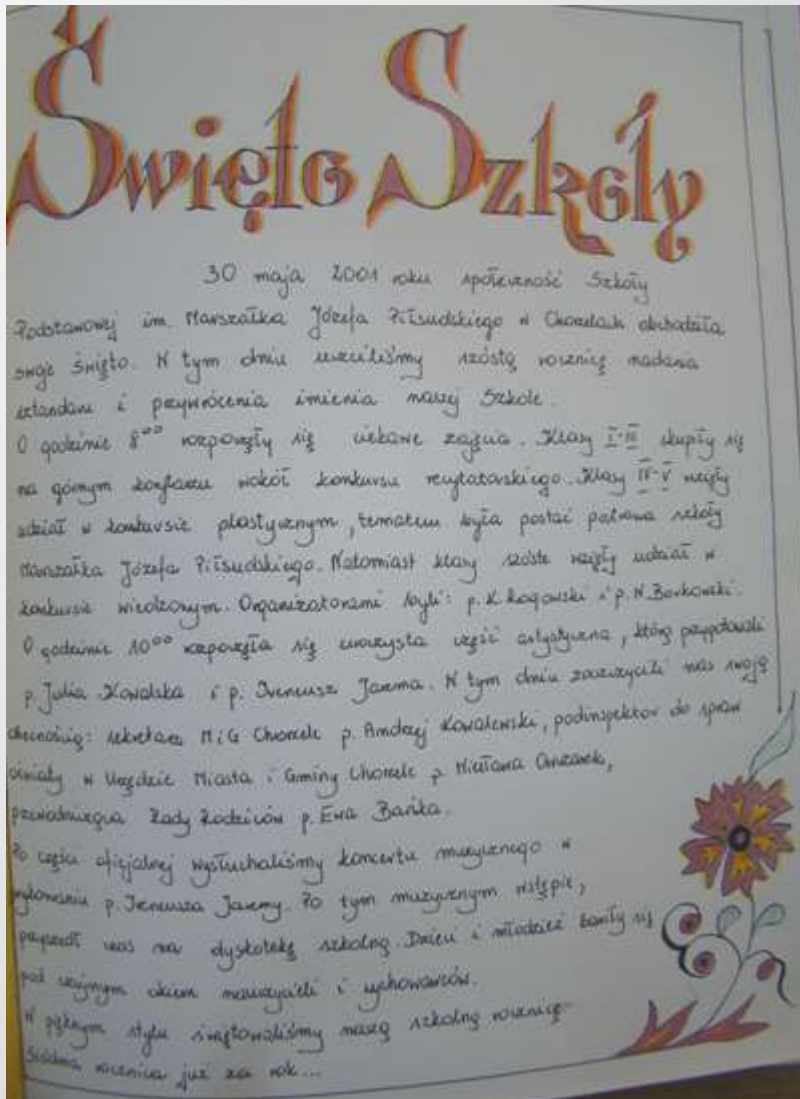 Święto Szkoły
30 maja 2001 roku społeczność Szkoły
Podstawowej im. Marszałka Józefa Piłsudskiego w Chorzelach obchodziła
swoje święto. W tym dniu uczciliśmy szóstą rocznicę nadania
sztandaru i przywrócenia imienia naszej Szkole.
O godzinie 8⁰⁰ rozpoczęły się ciekawe zajęcia. Klasy I-III skupiły się
na górnym korytarzu wokół konkursu recytatorskiego. Klasy IV-V wzięły
udział w konkursie plastycznym, tematem była postać patrona szkoły
Marszałka Józefa Piłsudskiego. Natomiast klasy szóste wzięły udział w
konkursie wiedzowym. Organizatorami byli: p. K. Rogowski i p. W. Borkowski.
O godzinie 10⁰⁰ rozpoczęła się uroczysta część artystyczna, którą przygotowali
p. Julia Kowalska i p. Ireneusz Jarema. W tym dniu zaszczycili nas swoją
obecnością: sekretarz MiG Chorzele p. Andrzej Kowalewski, podinspektor do spraw
oświaty w Urzędzie Miasta i Gminy Chorzele p.
przewodnicząca Rady Rodziców p. Ewa Bańka.
Po części oficjalnej wysłuchaliśmy koncertu muzycznego w
wykonaniu p. Ireneusza Jaremy. Po tym muzycznym wstępie,
przyszedł czas na dyskotekę szkolną. Dzieci i młodzież bawiły się
pod czujnym okiem nauczycieli i wychowawców.
W pięknym stylu świętowaliśmy naszą szkolną rocznicę
Siódma rocznica już za rok...